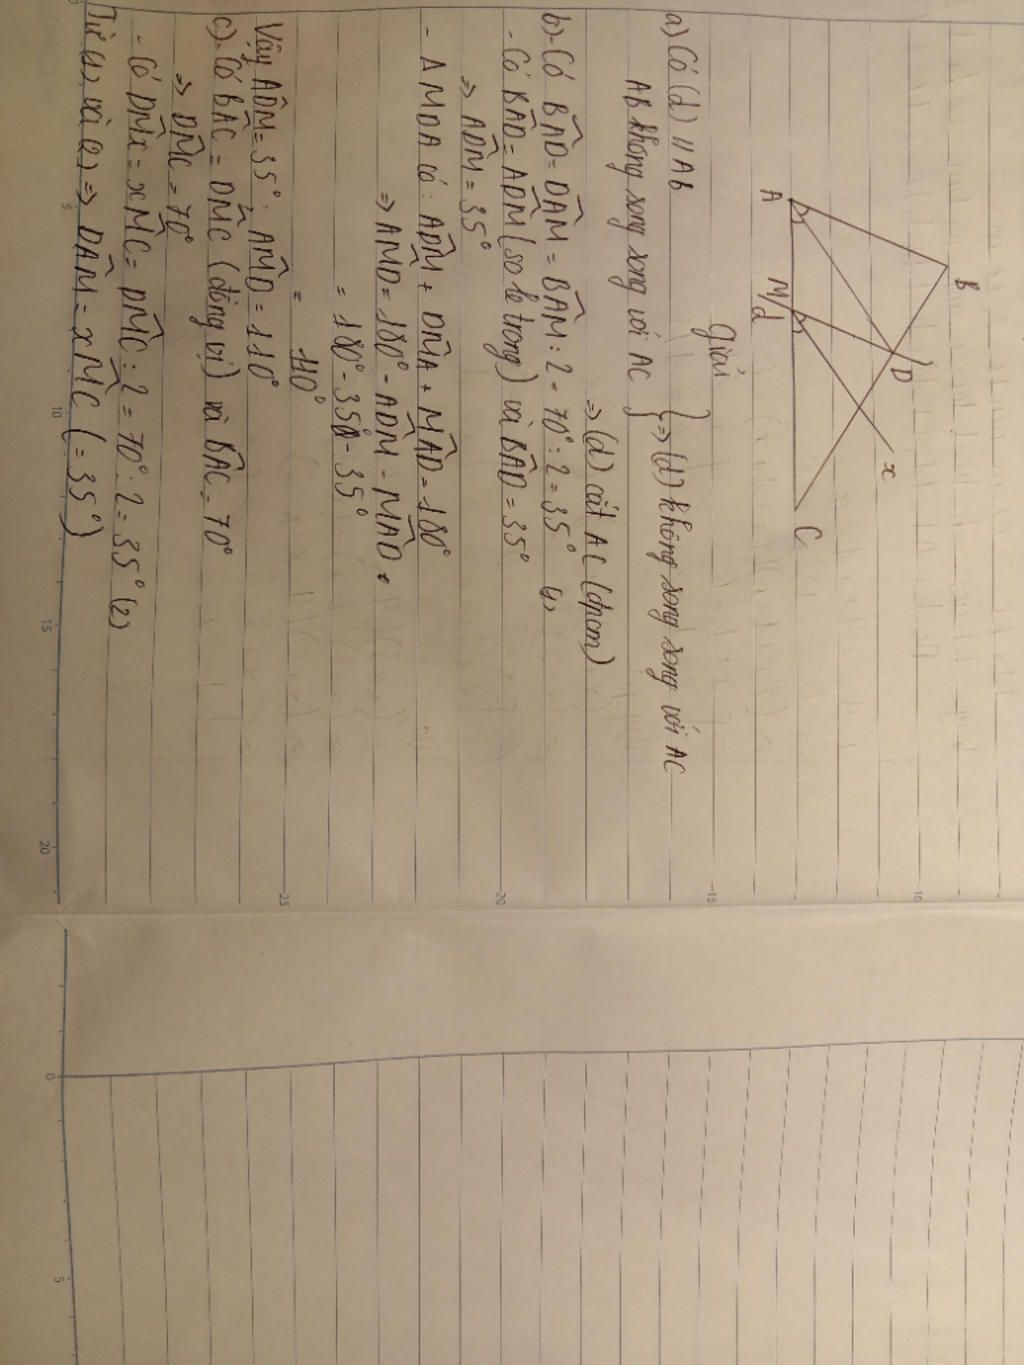 B
A
M/d
D
x
C
Giải
a) Có (d) // AB
AB không song song với AC } => (d) không song song với AC
=> (d) cắt AC (đpcm)
b) - Có BAD̂ = DAM̂ = BAM̂ : 2 = 70° : 2 = 35° (1)
- Có BAD̂ = ADM̂ (so le trong) và BAD̂ = 35°
=> ADM̂ = 35°
- ΔMDA có: ADM̂ + DMÂ + MAD̂ = 180°
=> AMD̂ = 180° - ADM̂ - MAD̂.
= 180° - 35° - 35°
= 110°
Vậy ADM̂ = 35°; AMD̂ = 110°
c) - Có BAĈ = DMĈ (đồng vị) và BAĈ = 70°
=> DMĈ = 70°
- Có DMx̂ = xMĈ = DMĈ : 2 = 70° : 2 = 35° (2)
Từ (1) và (2) => DAM̂ = xMĈ (= 35°)
5
10
15
20
-10
-15
-20
-25
0
5